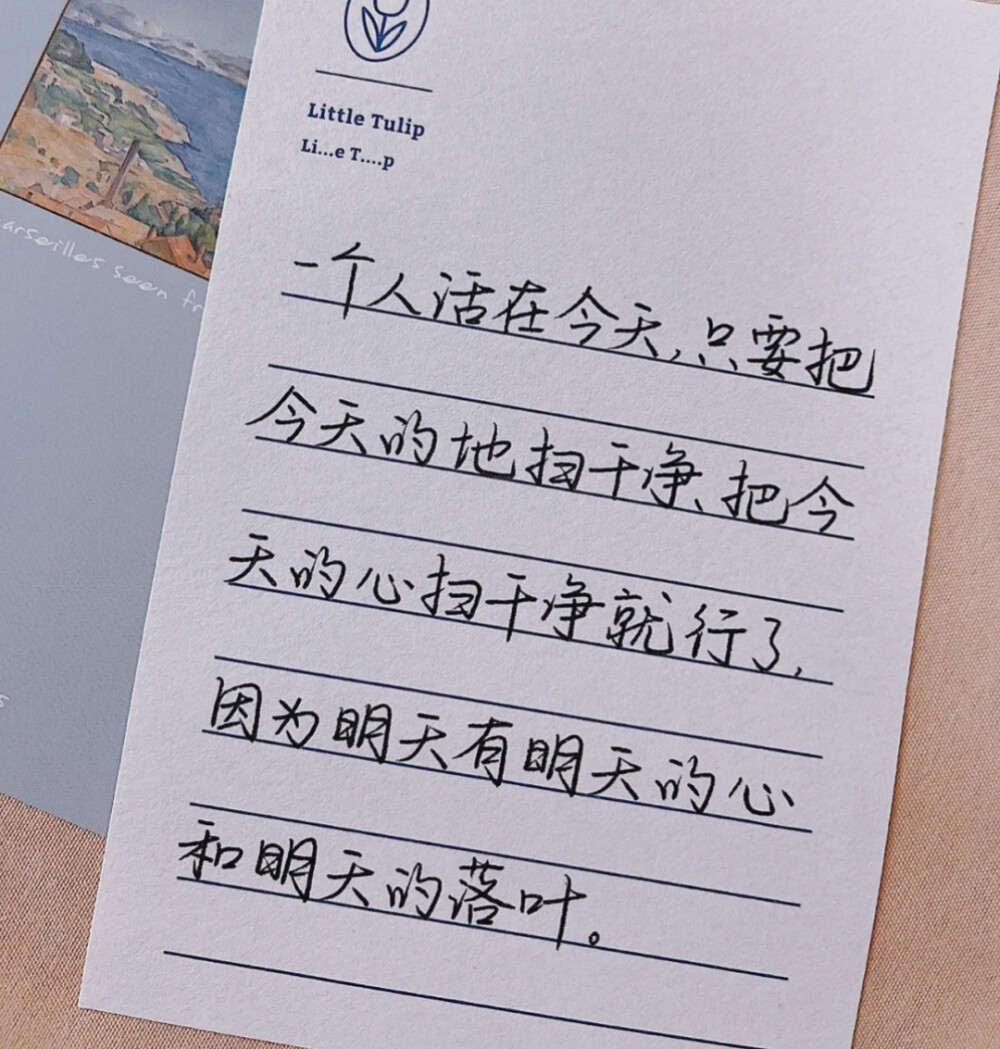 Little Tulip
Li...e T....p
arseilles seen fr
一个人活在今天,只要把
今天的地扫干净、把今
天的心扫干净就行了,
因为明天有明天的心
和明天的落叶。